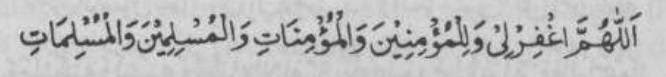 اَللّٰهُمَّ اغْفِرْ لِيْ وَلِلْمُؤْمِنِيْنَ وَالْمُؤْمِنَاتِ وَالْمُسْلِمِيْنَ وَالْمُسْلِمَاتِ